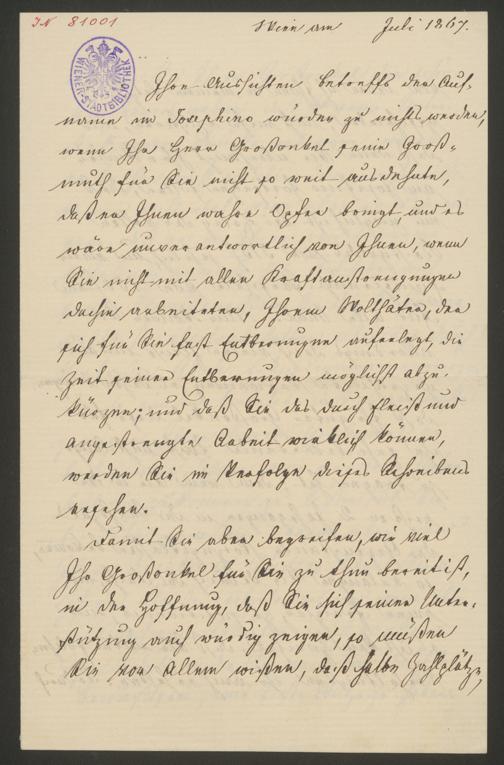 IN 81001
WIENER STADTBIBLIOTHEK
Wien am Juli 1867.
Ihre Aussichten betreffs der Auf-
name im Josephino würden zu nichts werden,
wenn Ihr Herr Großonkel seine Groß-
muth für Sie nicht so weit ausdehnte,
daß er Ihnen wahre Opfer bringt, und es
wäre unverantwortlich von Ihnen, wenn
Sie nicht mit allen Kraftanstrengungen
dahin arbeiteten, Ihrem Wolthäter, der
sich für Sie fast Entberungen auferlegt, die
Zeit seiner Entberungen möglichst abzu-
kürzen; und daß Sie das durch Fleiß und
angestrengte Arbeit wirklich können,
werden Sie im Verfolge dieses Schreibens
ersehen.
Damit Sie aber begreifen, wie viel
Ihr Großonkel für Sie zu thun bereit ist,
in der Hoffnung, daß Sie sich seiner Unter-
stützung auch würdig zeigen, so müßen
Sie vor Allem wißen, daß halbe Zahlplätze,